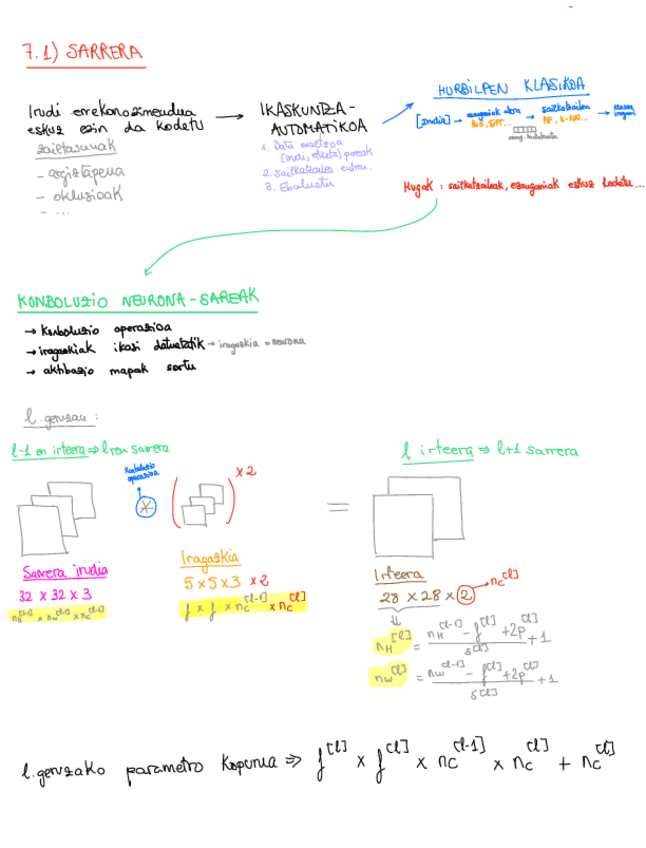 7.1) SARRERA
Irudi errekonozimendua
eskuz ezin da kodetu
zailtasunak
- argiztapena
- oklusioak
- ...
→ IKASKUNTZA-
AUTOMATIKOA
1. Datu multzoa
(irudi, etiketa) pareak
2. sailkatzailea entren.
3. Ebaluatu
HURBILPEN KLASIKOA
[irudia] → ezaugarriak atera → sailkatzailea →
HOG, SIFT... RF, K-NN...
Mugak : sailkatzaileak, ezaugarriak eskuz kodetu...
KONBOLUZIO NEURONA-SAREAK
→ Konboluzio operazioa
→ iragazkiak ikasi datuetatik → iragazkia = neurona
→ aktibazio mapak sortu
l. geruzan :
l-1 en irteera ⇒ l ren sarrera
l irteera ⇒ l+1 sarrera
Konboluzio
operazioa
* ( ) x2 =
Sarrera irudia
32 x 32 x 3
n_H^[l-1] x n_W^[l-1] x n_C^[l-1]
Iragazkia
5 x 5 x 3 x 2
f x f x n_C^[l-1] x n_C^[l]
Irteera
28 x 28 x 2 → n_C^[l]
⇓
n_H^[l] = (n_H^[l-1] - f^[l] + 2p^[l]) / s^[l] + 1
n_W^[l] = (n_W^[l-1] - f^[l] + 2p^[l]) / s^[l] + 1
l. geruzako parametro kopurua ⇒ f^[l] x f^[l] x n_C^[l-1] x n_C^[l] + n_C^[l]